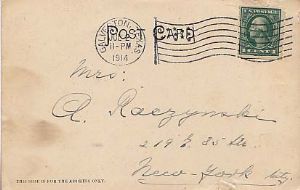 POST CARD
GALVESTON, TEXAS
11-PM
1914
Mrs.
A. Raczynski
219 E. 35 St.
New-York City.
THIS SIDE IS FOR THE ADDRESS ONLY.